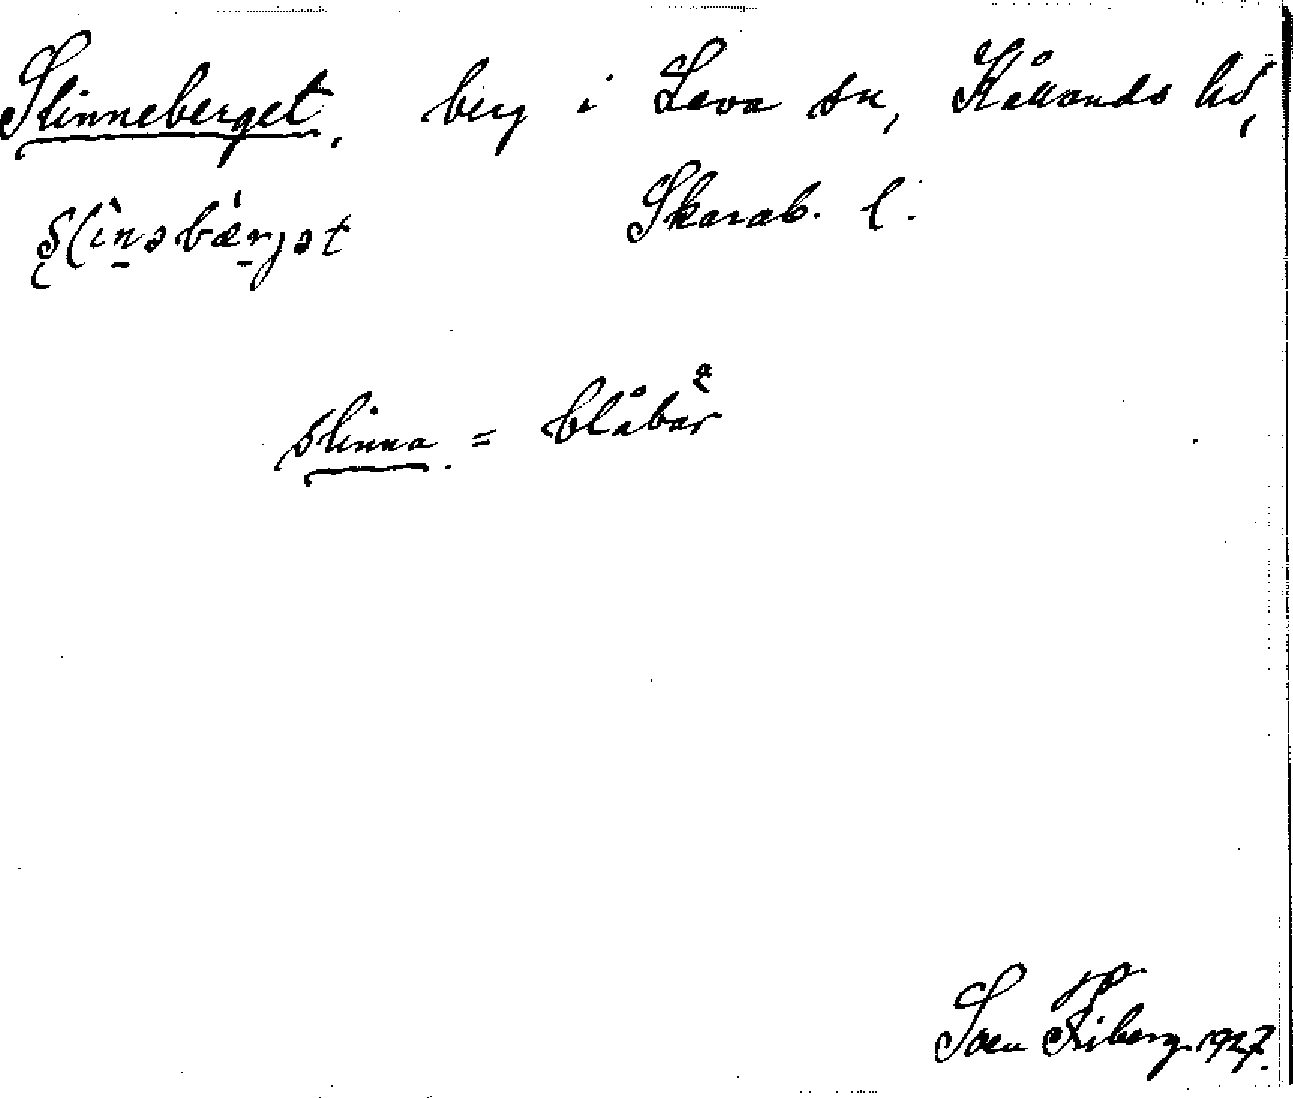 Slinneberget, berg i Leva sn, Kållands hd,
Skarab. l.
slinna = blåbär
Sven Friberg. 1927.